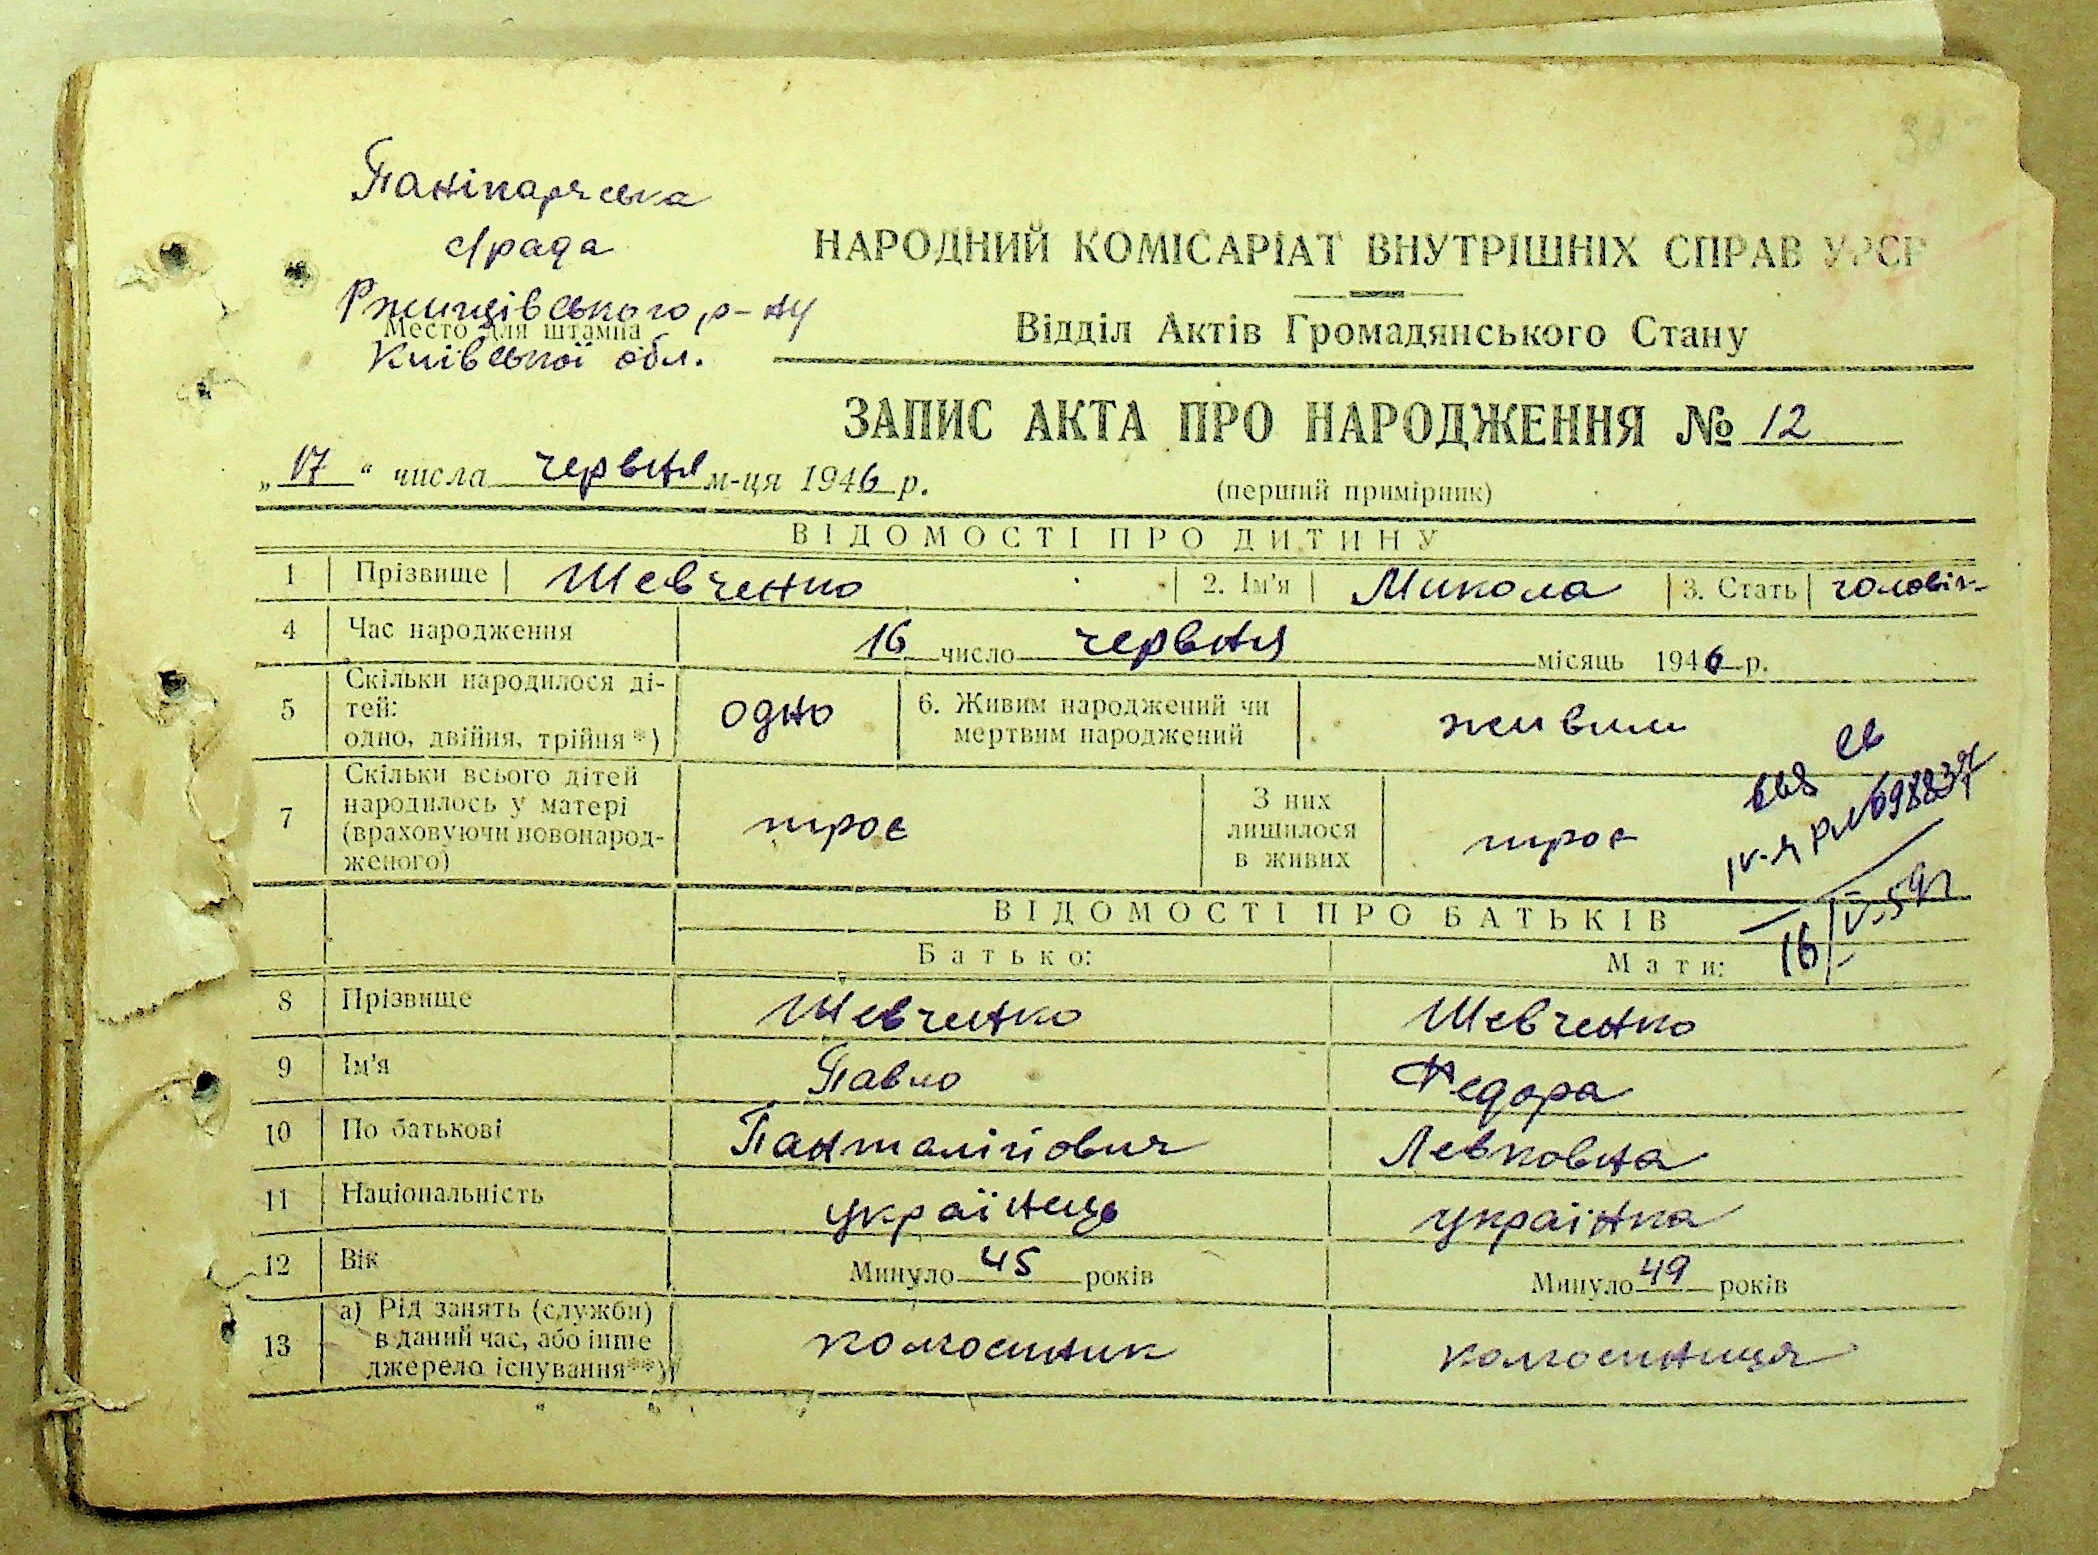 Паніпарчська
с/рада
Ржищівського р-ну
Место для штампа
Київської обл.
НАРОДНИЙ КОМІСАРІАТ ВНУТРІШНІХ СПРАВ УРСР
Відділ Актів Громадянського Стану
ЗАПИС АКТА ПРО НАРОДЖЕННЯ № 12
„17“ числа червня м-ця 1946 р.
(перший примірник)
ВІДОМОСТІ ПРО ДИТИНУ
1 Прізвище Шевченко 2. Ім'я Микола 3. Стать чоловік-
4 Час народження 16 число червня місяць 1946 р.
5 Скільки народилося ді-
тей:
одно, двійня, трійня*)
одно
6. Живим народжений чи
мертвим народжений
живим
7 Скільки всього дітей
народилось у матері
(враховуючи новонарод-
женого)
троє
З них
лишилося
в живих
троє
16/V-59г
ВІДОМОСТІ ПРО БАТЬКІВ
Батько: Мати:
8 Прізвище Шевченко Шевченко
9 Ім'я Павло Федора
10 По батькові Панталійович Левковна
11 Національність українець українка
12 Вік Минуло 45 років Минуло 49 років
13 а) Рід занять (служби)
в даний час, або інше
джерело існування**)
колгоспник колгоспниця